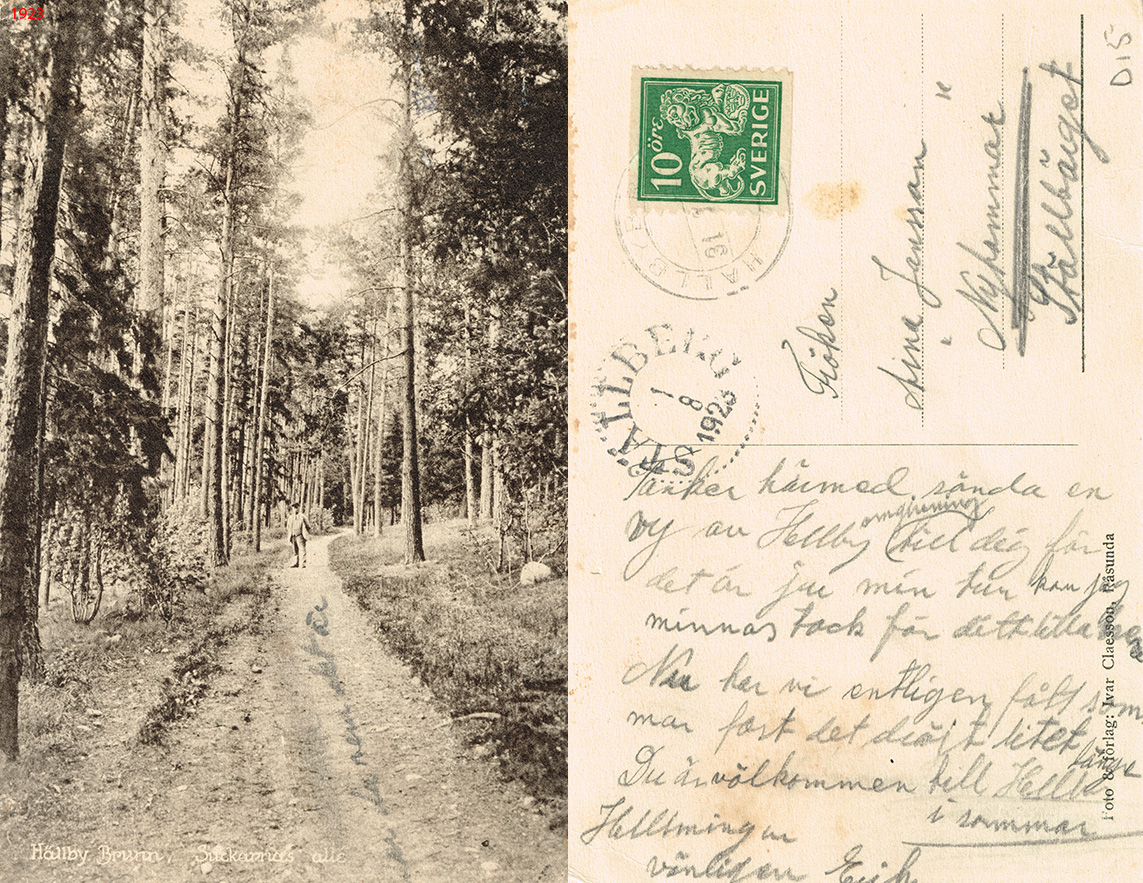 1923
Hällby Brunn, Suckarnas allé
det är
10 öre
SVERIGE
HÄLLBY
31
STÄLLBERG
1
8
1923
D15
Fröken
Anna Jansson
" Nyhammar "
Ställbärget
Tänker härmed sända en
vy av Hellby omgifning till dig för
det är ju min tur kan jag
minnas tack för ditt lilla
Nu har vi entligen fått som
mar fast det dröjt litet
länge
Du är völkommen till Hellby
i sommar
Hellsningar
vänligen
Foto & förlag: Ivar Claesson, Råsunda